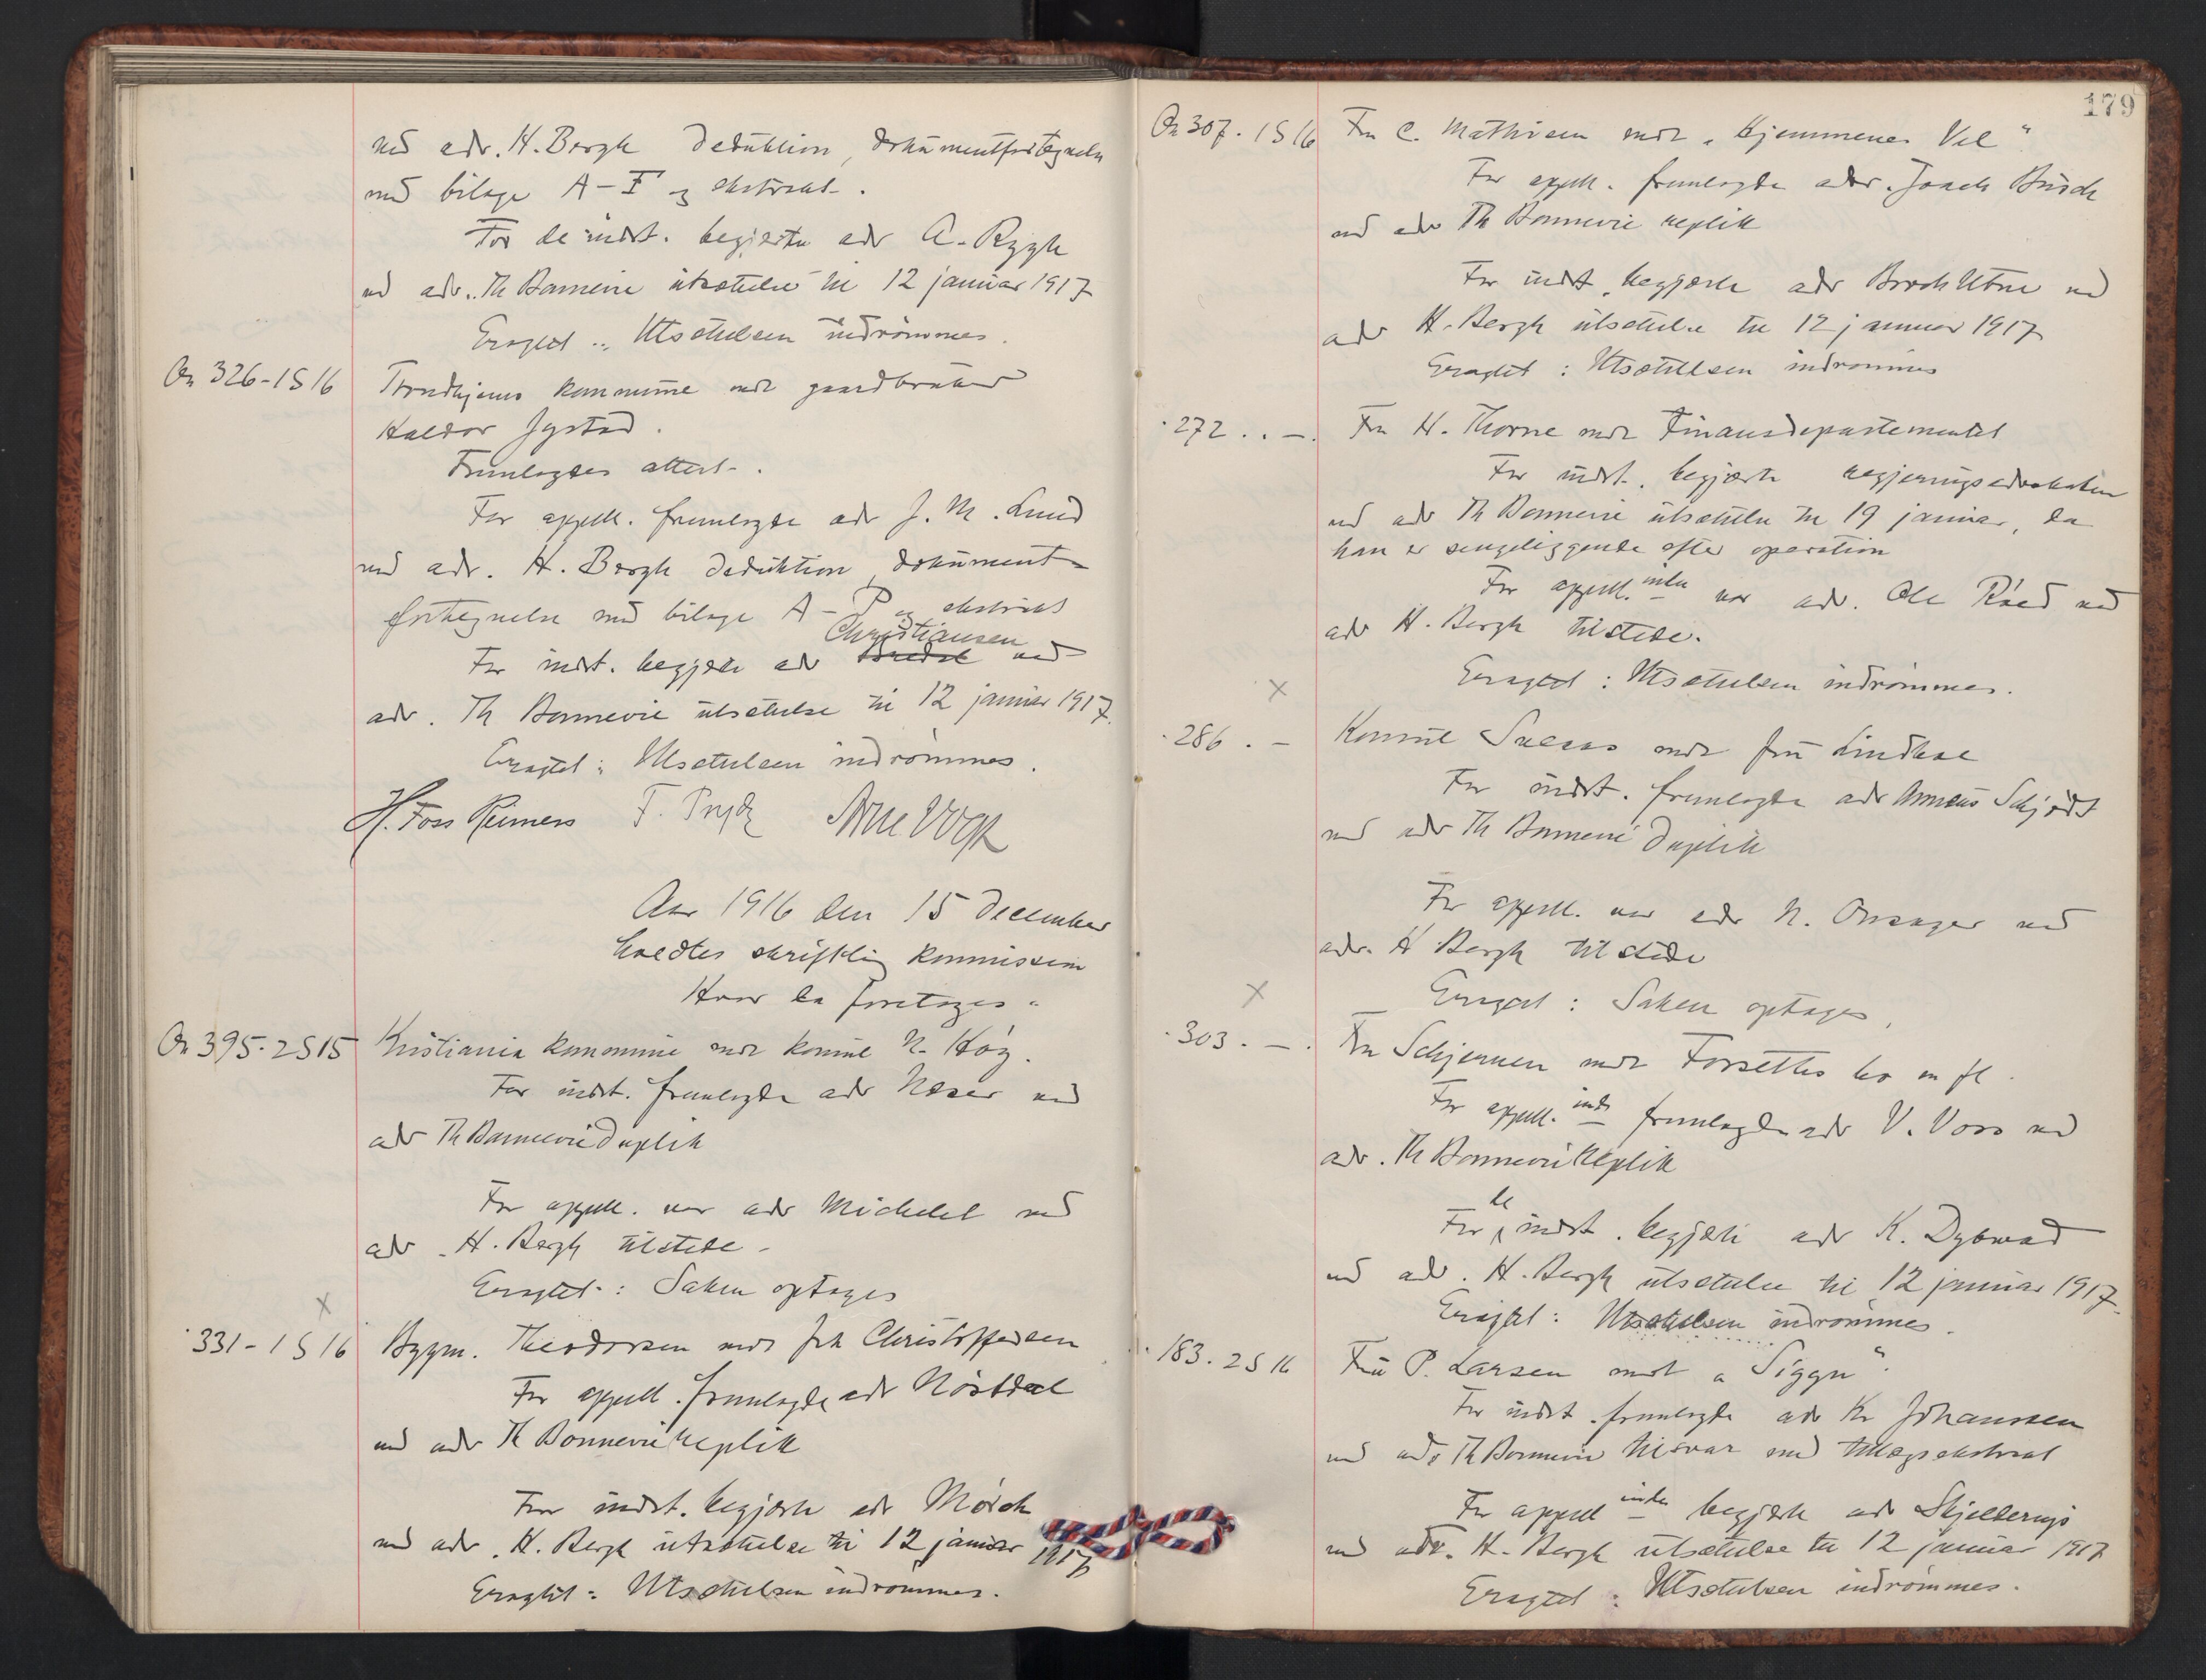 ved adv. H. Bergh deduktion, dokumentfortegnelse
med bilage A-F og ekstrakt.
For de indst. begjærte adv A. Rygh
ved adv. Th Bonnevie utsættelse til 12 januar 1917
Eragtet: Utsættelsen indrømmes.
On 326-1S16
Trondhjems kommune mot gaardbruker
Haldor Jystad.
Fremlagdes attest.
For appell. fremlagde adv J. M. Lund
ved adv. H. Bergh deduktion, dokument-
fortegnelse med bilage A-P og ekstrakt
Christiansen
For indst. begjærte adv Bredal ved
adv. Th Bonnevie utsættelse til 12 januar 1917.
Eragtet: Utsættelsen indrømmes.
H. Foss Reimers F. Prydz Arne Vogt
Aar 1916 den 15 december
holdtes skriftlig kommission
Hvor da foretoges:
On 395-2S15
Kristiania kommune mot konsul N. Høg.
For indst. fremlagde adv Næser ved
adv Th Bonnevie Duplik
For appell. var adv Michelet ved
adv. H. Bergh tilstede.
Eragtet: Saken optages
x
331-1S16
Bygm. Theodorsen mot frk Christoffersen
For appell. fremlagde adv Nørstdal
ved adv Th Bonnevie replik
For indst. begjærte adv Mørch
ved adv. H. Bergh utsættelse til 12 januar
1917
Eragtet: Utsættelsen indrømmes.
179
On 307.1S16
Fru C. Mathisen mot "Hjemmenes Vel"
For appell. fremlagde adv. Joach Busch
ved adv Th Bonnevie replik
For indst. begjærte adv Broch Utne ved
adv H. Bergh utsættelse til 12 januar 1917
Eragtet: Utsættelsen indrømmes
272 . . -.
Fru H. Thorne mot Finansdepartementet
For indst. begjærte regjeringsadvokaten
ved adv Th Bonnevie utsættelse til 19 januar, da
han er sengeliggende efter operation
For appell. inden var adv. Ole Røed ved
adv H. Bergh tilstede.
Eragtet: Utsættelsen indrømmes.
x
286 . -
Konsul Sæessn mot fru Lindboe
For indst. fremlagde adv Annæus Schjødt
ved adv Th Bonnevie Duplik
For appell. var adv N. Onsager ved
adv. H Bergh tilstede
Eragtet: Saken optages,
x
303 . -.
Fru Schjernen mot Forsettes bo m fl.
For appell. inden fremlagde adv V. Voss ved
adv. Th Bonnevie Replik
de
For indst. begjærte adv K. Dybwad
ved adv. H. Bergh utsættelse til 12 januar 1917.
Eragtet: Utsættelsen indrømmes.
183. 2S16
Fru P. Larsen mot "Siggn".
For indst. fremlagde adv Kr Johanssen
ved adv Th Bonnevie tilsvar med tillægsekstrakt
For appell inden begjærte adv Skjelderup
ved adv. H. Bergh utsættelse til 12 januar 1917
Eragtet: Utsættelsen indrømmes.